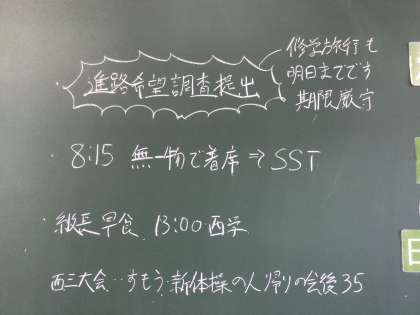 進路希望調査提出
修学旅行も
明日までです
期限厳守
・8:15 無一物で着席⇒SST
・級長早食、13:00西学
西三大会…すもう・新体操の人帰りの会後35